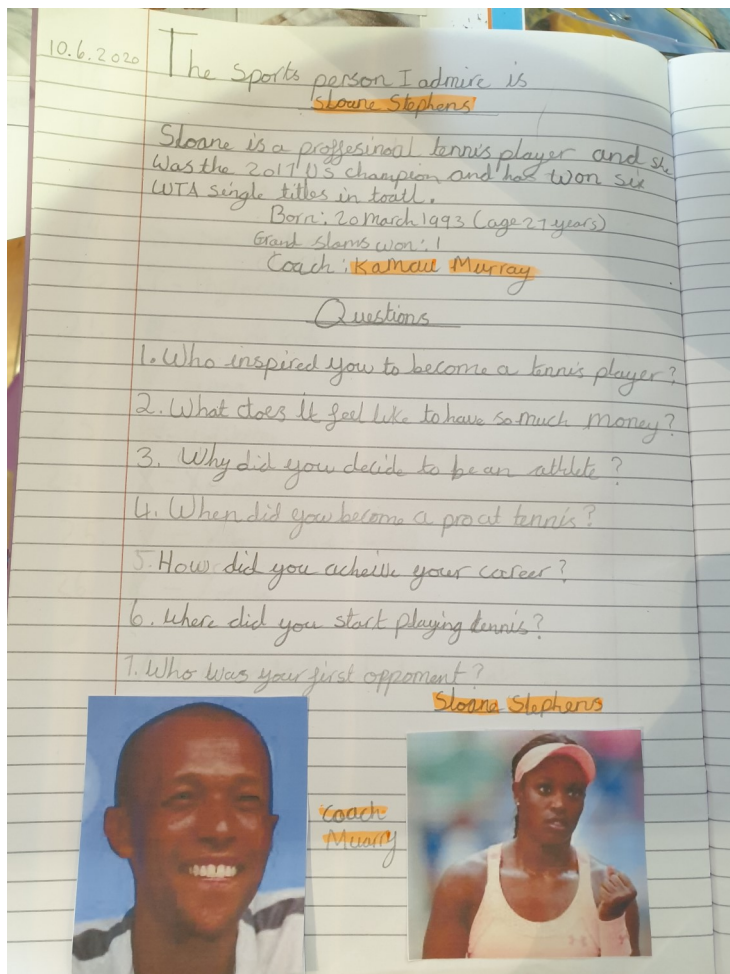 10.6.2020
The sports person I admire is
Sloane Stephens
Sloane is a proffesinoal tennis player and she
was the 2017 US champion and has won six
WTA single titles in toatl.
Born: 20 March 1993 (age 27 years)
Grand slams won: 1
Coach: Kamau Murray
Questions
1. Who inspired you to become a tennis player?
2. What does it feel like to have so much money?
3. Why did you decide to be an athlete?
4. When did you become a pro at tennis?
5. How did you acheive your career?
6. where did you start playing tennis?
7. Who was your first oppoment?
Sloane Stephens
Coach
Muarry